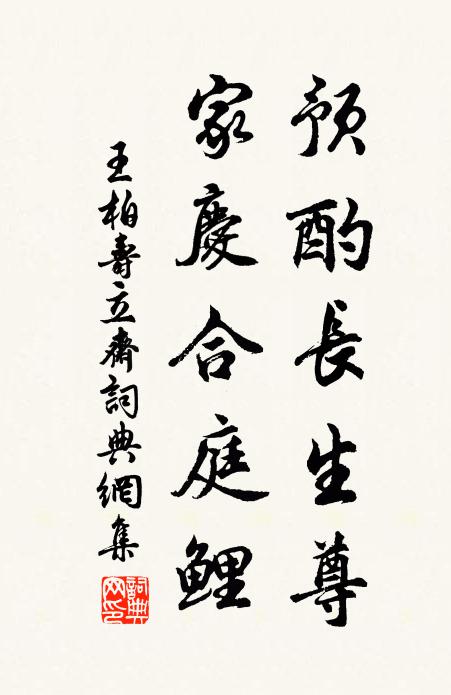 預酌長生尊
家慶合庭鯉
王柏壽立齋詞典網集
詞典網印